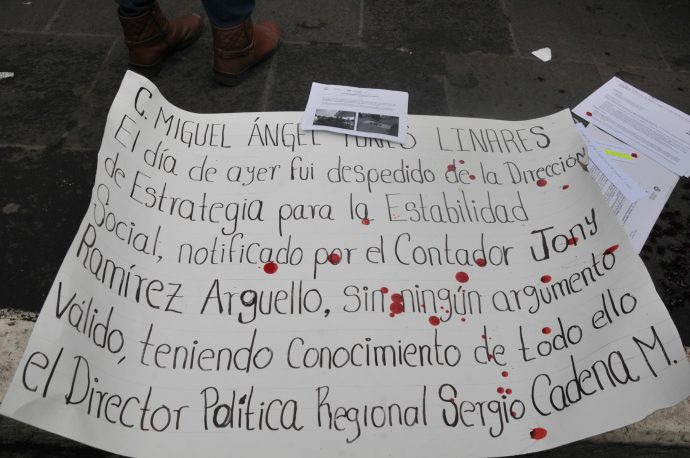 C. MIGUEL ÁNGEL YUNES LINARES
El día de ayer fui despedido de la Dirección
de Estrategia para la Estabilidad
Social, notificado por el Contador Jony
Ramírez Arguello, sin ningún argumento
Válido, teniendo conocimiento de todo ello
el Director Política Regional Sergio Cadena M.